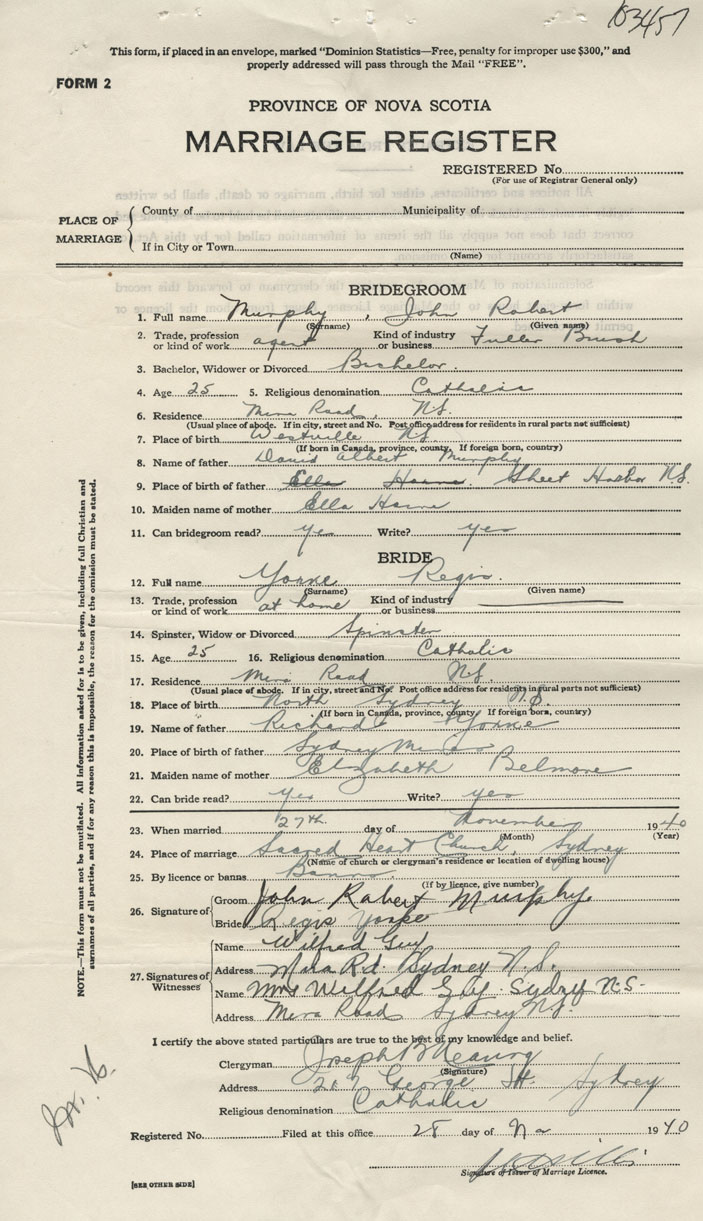 103457
This form, if placed in an envelope, marked "Dominion Statistics—Free, penalty for improper use $300," and
properly addressed will pass through the Mail "FREE".
FORM 2
PROVINCE OF NOVA SCOTIA
MARRIAGE REGISTER
REGISTERED No.
(For use of Registrar General only)
PLACE OF MARRIAGE
County of Municipality of
If in City or Town
(Name)
BRIDEGROOM
1. Full name Murphy, John Robert
(Surname) (Given name)
2. Trade, profession or kind of work agent Kind of industry or business Fuller Brush
3. Bachelor, Widower or Divorced Bachelor.
4. Age 25 5. Religious denomination Catholic
6. Residence Mira Road, N.S.
(Usual place of abode. If in city, street and No. Post office address for residents in rural parts not sufficient)
7. Place of birth Westville N.S.
(If born in Canada, province, county. If foreign born, country)
8. Name of father David Albert Murphy
9. Place of birth of father Ella Sheet Harbor N.S.
10. Maiden name of mother Ella
11. Can bridegroom read? yes Write? yes
BRIDE
12. Full name Yorke Regis.
(Surname) (Given name)
13. Trade, profession or kind of work at home Kind of industry or business
14. Spinster, Widow or Divorced Spinster
15. Age 25 16. Religious denomination Catholic
17. Residence Mira Road N.S.
(Usual place of abode. If in city, street and No. Post office address for residents in rural parts not sufficient)
18. Place of birth North Sydney N.S.
(If born in Canada, province, county If foreign born, country)
19. Name of father Richard Yorke
20. Place of birth of father Sydney Mines
21. Maiden name of mother Elizabeth Belmore
22. Can bride read? yes Write? yes
23. When married 27th. day of November 1940
(Month) (Year)
24. Place of marriage Sacred Heart Church, Sydney
(Name of church or clergyman's residence or location of dwelling house)
25. By licence or banns Banns
(If by licence, give number)
26. Signature of
Groom John Robert Murphy.
Bride Regis Yorke
27. Signatures of Witnesses
Name Wilfred Guy
Address Mira Rd. Sydney N.S.
Name Mrs Wilfred Guy. Sydney N.S.
Address Mira Road Sydney N.S.
I certify the above stated particulars are true to the best of my knowledge and belief.
Clergyman Joseph B
(Signature)
Address George St. Sydney
Religious denomination Catholic
Registered No. Filed at this office 28 day of 1940
Signature of Issuer of Marriage Licence.
[SEE OTHER SIDE]
NOTE.—This form must not be mutilated. All information asked for is to be given, including full Christian and
surnames of all parties, and if for any reason this is impossible, the reason for the omission must be stated.